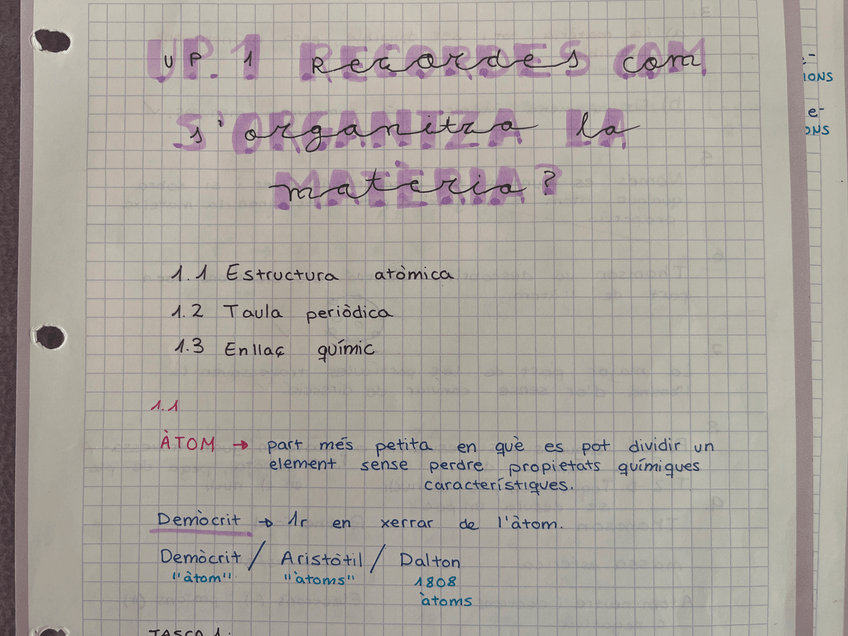 UP.1 Recordes com
s'organitza la
matèria?
1.1 Estructura atòmica
1.2 Taula periòdica
1.3 Enllaç químic
1.1
ÀTOM → part més petita en què es pot dividir un
element sense perdre propietats químiques
característiques.
Demòcrit → 1r en xerrar de l'àtom.
Demòcrit / Aristòtil / Dalton
"àtom" "àtoms" 1808
àtoms
TASCA 1:
e-
IONS
e-
ONS